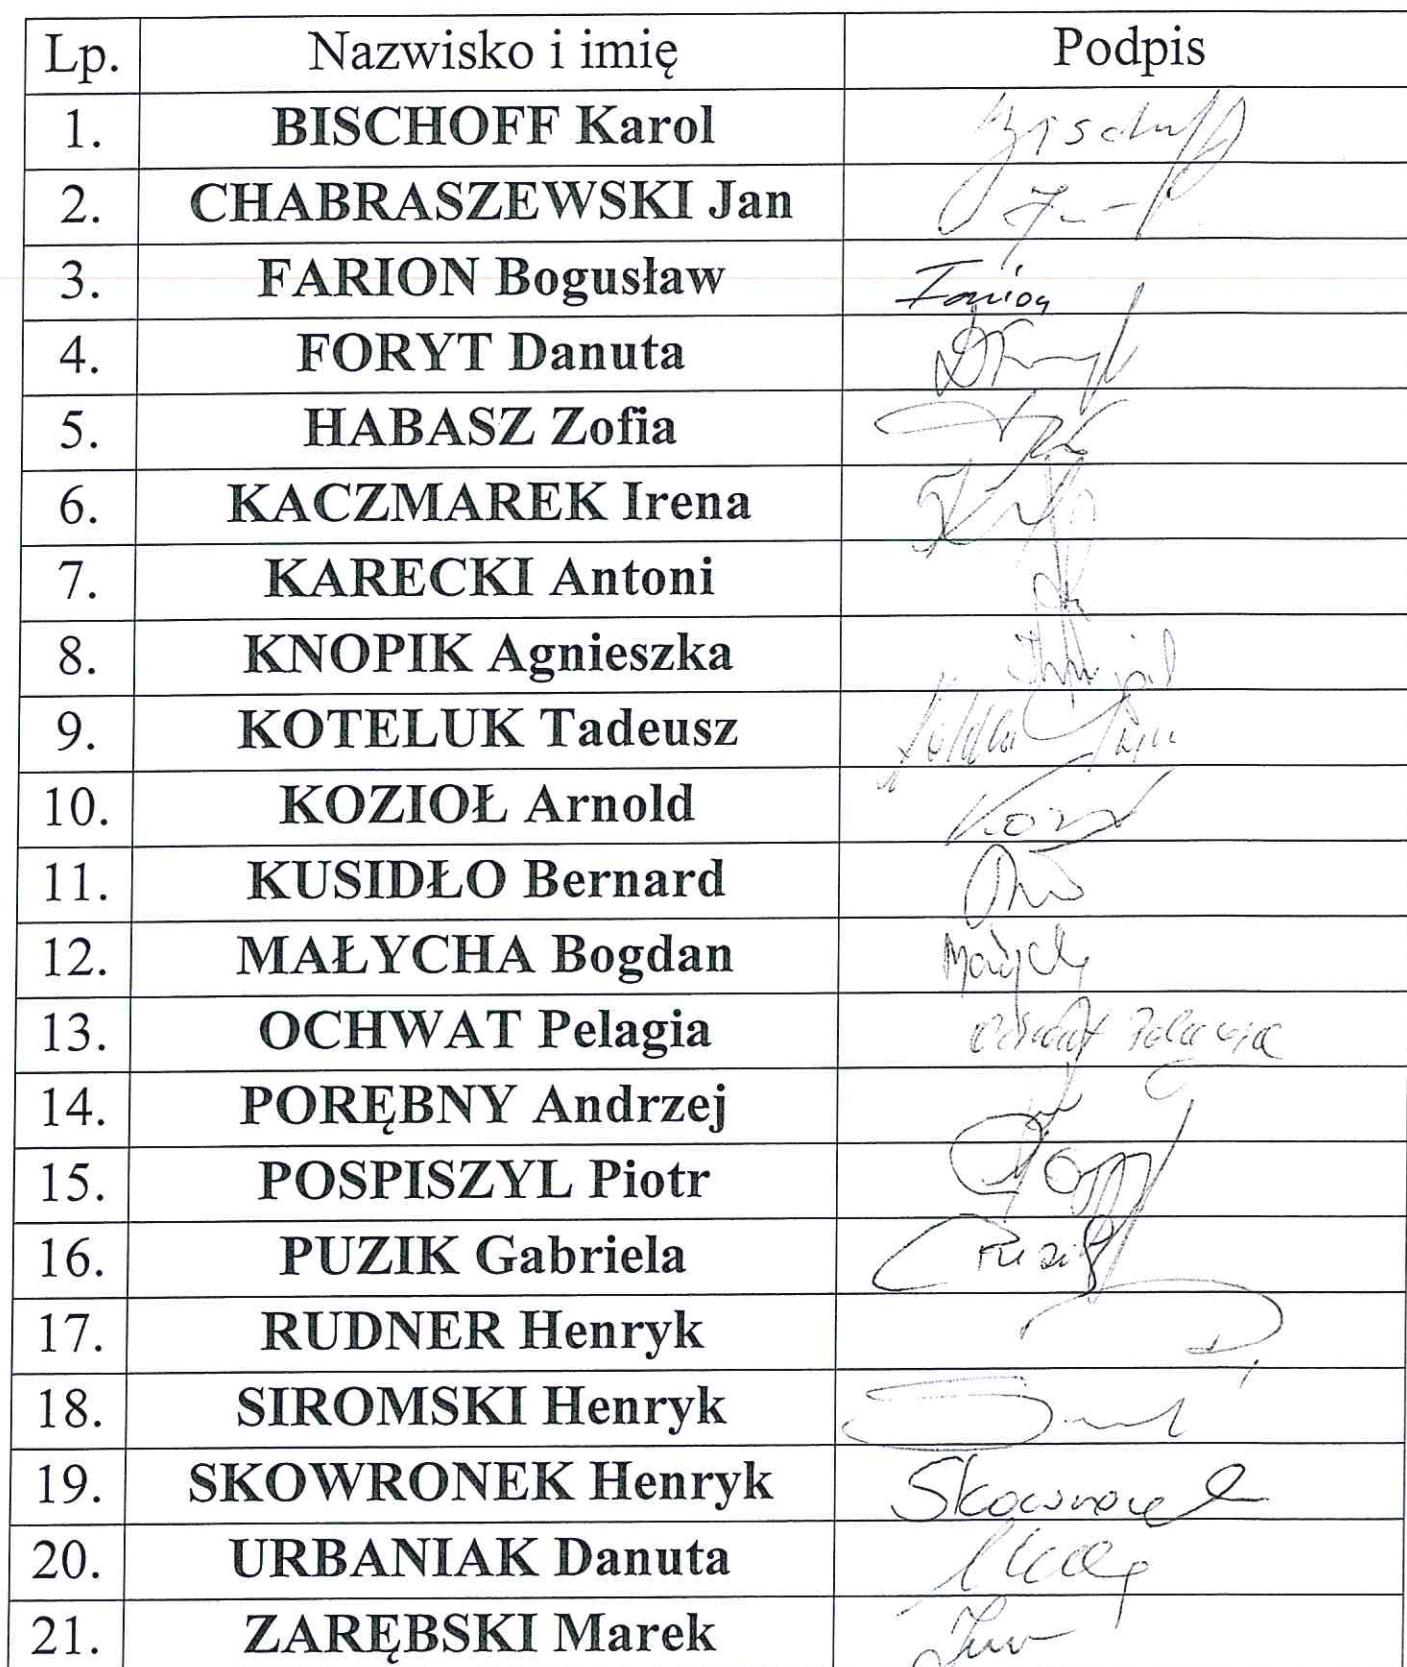 Lp. Nazwisko i imię Podpis
1. BISCHOFF Karol Bischoff
2. CHABRASZEWSKI Jan
3. FARION Bogusław Farion
4. FORYT Danuta
5. HABASZ Zofia
6. KACZMAREK Irena
7. KARECKI Antoni
8. KNOPIK Agnieszka
9. KOTELUK Tadeusz
10. KOZIOŁ Arnold
11. KUSIDŁO Bernard
12. MAŁYCHA Bogdan
13. OCHWAT Pelagia Ochwat Pelagia
14. PORĘBNY Andrzej
15. POSPISZYL Piotr
16. PUZIK Gabriela Puzik
17. RUDNER Henryk
18. SIROMSKI Henryk
19. SKOWRONEK Henryk Skowronek
20. URBANIAK Danuta
21. ZARĘBSKI Marek